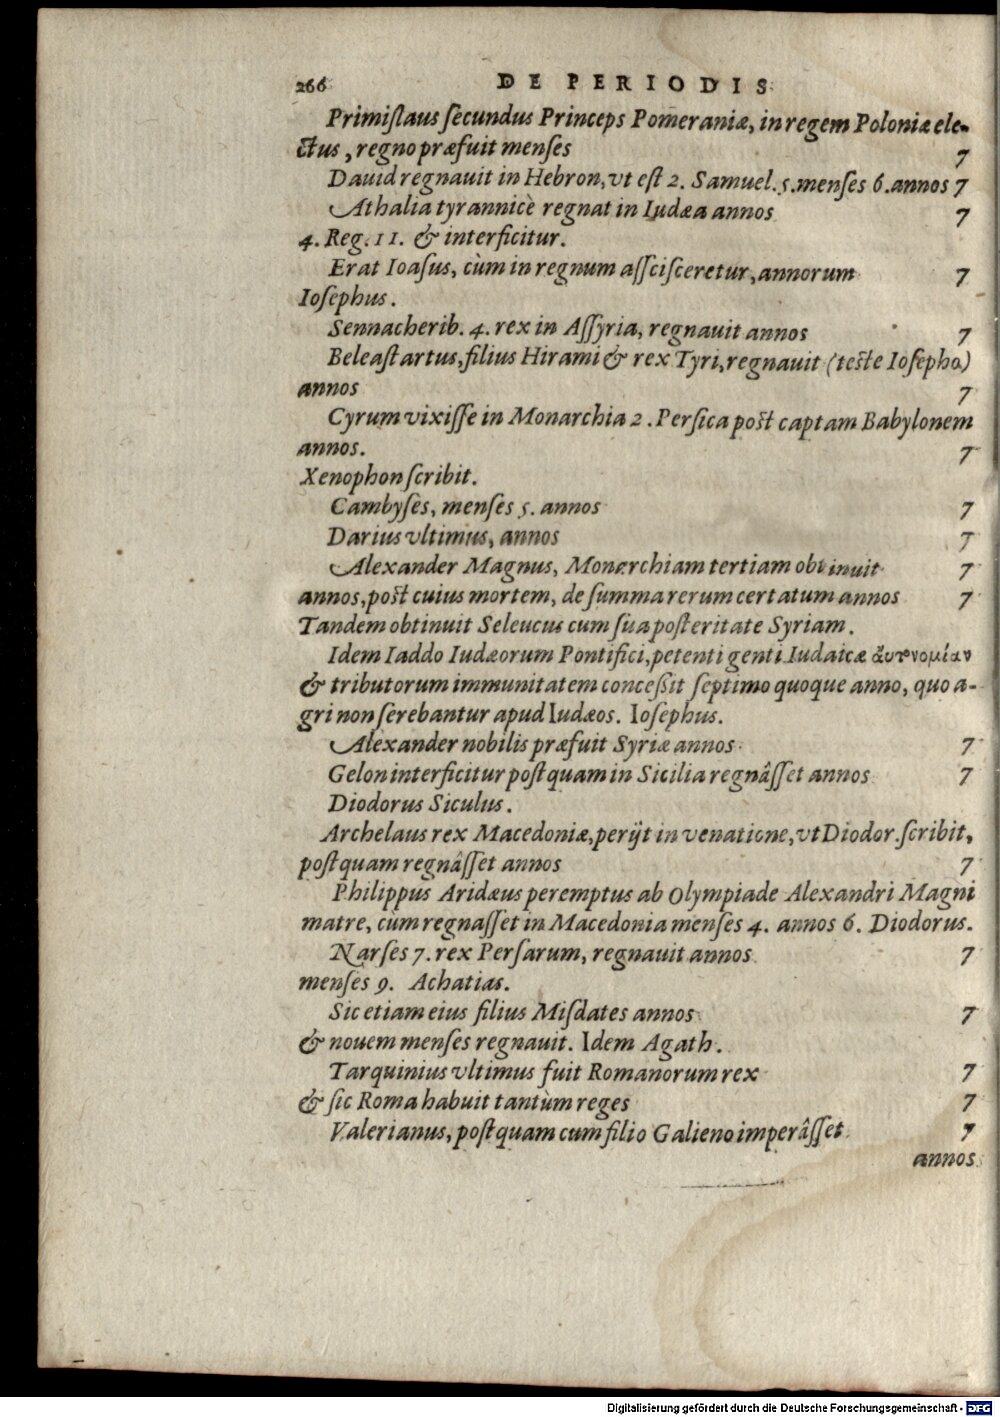 266 DE PERIODIS
Primiſlaus ſecundus Princeps Pomeraniæ, in regem Poloniæ ele-
ctus, regno præfuit menſes 7
Dauid regnauit in Hebron, vt eſt 2. Samuel. 5. menſes 6. annos 7
Athalia tyrannicè regnat in Iudæa annos 7
4. Reg. 11. & interficitur.
Erat Ioaſus, cùm in regnum aſſciſceretur, annorum 7
Ioſephus.
Sennacherib. 4. rex in Aſſyria, regnauit annos 7
Beleaſtartus, filius Hirami & rex Tyri, regnauit (teſte Ioſepho)
annos 7
Cyrum vixiſſe in Monarchia 2. Perſica poſt captam Babylonem
annos. 7
Xenophon ſcribit.
Cambyſes, menſes 5. annos 7
Darius vltimus, annos 7
Alexander Magnus, Monarchiam tertiam obtinuit 7
annos, poſt cuius mortem, de ſumma rerum certatum annos 7
Tandem obtinuit Seleucus cum ſua poſteritate Syriam.
Idem Iaddo Iudæorum Pontifici, petenti genti Iudaicæ ἀυτονομίαν
& tributorum immunitatem conceſſit ſeptimo quoque anno, quo a-
gri non ſerebantur apud Iudæos. Ioſephus.
Alexander nobilis præfuit Syriæ annos 7
Gelon interficitur poſtquam in Sicilia regnâſſet annos 7
Diodorus Siculus.
Archelaus rex Macedoniæ, perijt in venatione, vt Diodor. ſcribit,
poſtquam regnâſſet annos 7
Philippus Aridæus peremptus ab Olympiade Alexandri Magni
matre, cùm regnaſſet in Macedonia menſes 4. annos 6. Diodorus.
Narſes 7. rex Perſarum, regnauit annos 7
menſes 9. Achatias.
Sic etiam eius filius Miſdates annos 7
& nouem menſes regnauit. Idem Agath.
Tarquinius vltimus fuit Romanorum rex 7
& ſic Roma habuit tantùm reges 7
Valerianus, poſtquam cum filio Galieno imperâſſet 7
annos
Digitalisierung gefördert durch die Deutsche Forschungsgemeinschaft - DFG